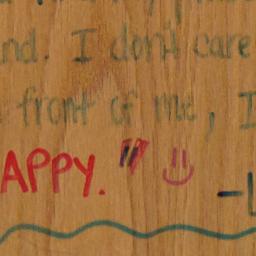 nd. I don't care
front of me, I
APPY."